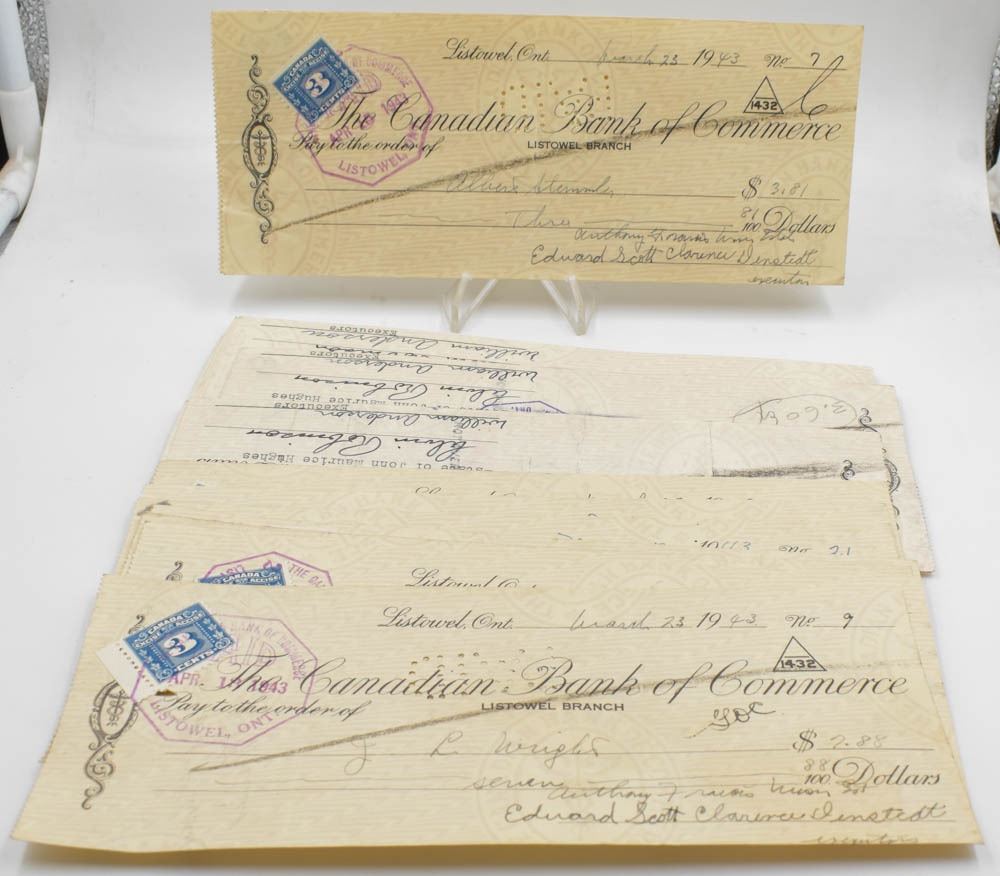 Listowel, Ont. March 23 1943 No 7
CANADA
EXCISE ACCISE
3
CENTS
OF COMMERCE
APR 1943
LISTOWEL, ONT
1432
The Canadian Bank of Commerce
Pay to the order of
LISTOWEL BRANCH
Albert
$ 3.81
Three 81/100 Dollars
Anthony Francis
Edward Scott Clarence Denstedt
executors
Executors
William Anderson
Executors
William Anderson
Alvin Robinson
of John Maurice Hughes
Executors
William Anderson
Alvin Robinson
Estate of John Maurice Hughes
No 21
CANADA
EXCISE ACCISE
THE CA
Listowel
Listowel, Ont. March 23 1943 No 9
CANADA
EXCISE ACCISE
3
CENTS
BANK OF COMMERCE
APR. 1943
LISTOWEL, ONT.
1432
The Canadian Bank of Commerce
Pay to the order of
LISTOWEL BRANCH
J. L. Wright
$ 7.88
seven 88/100 Dollars
Anthony Francis
Edward Scott Clarence Denstedt
executors